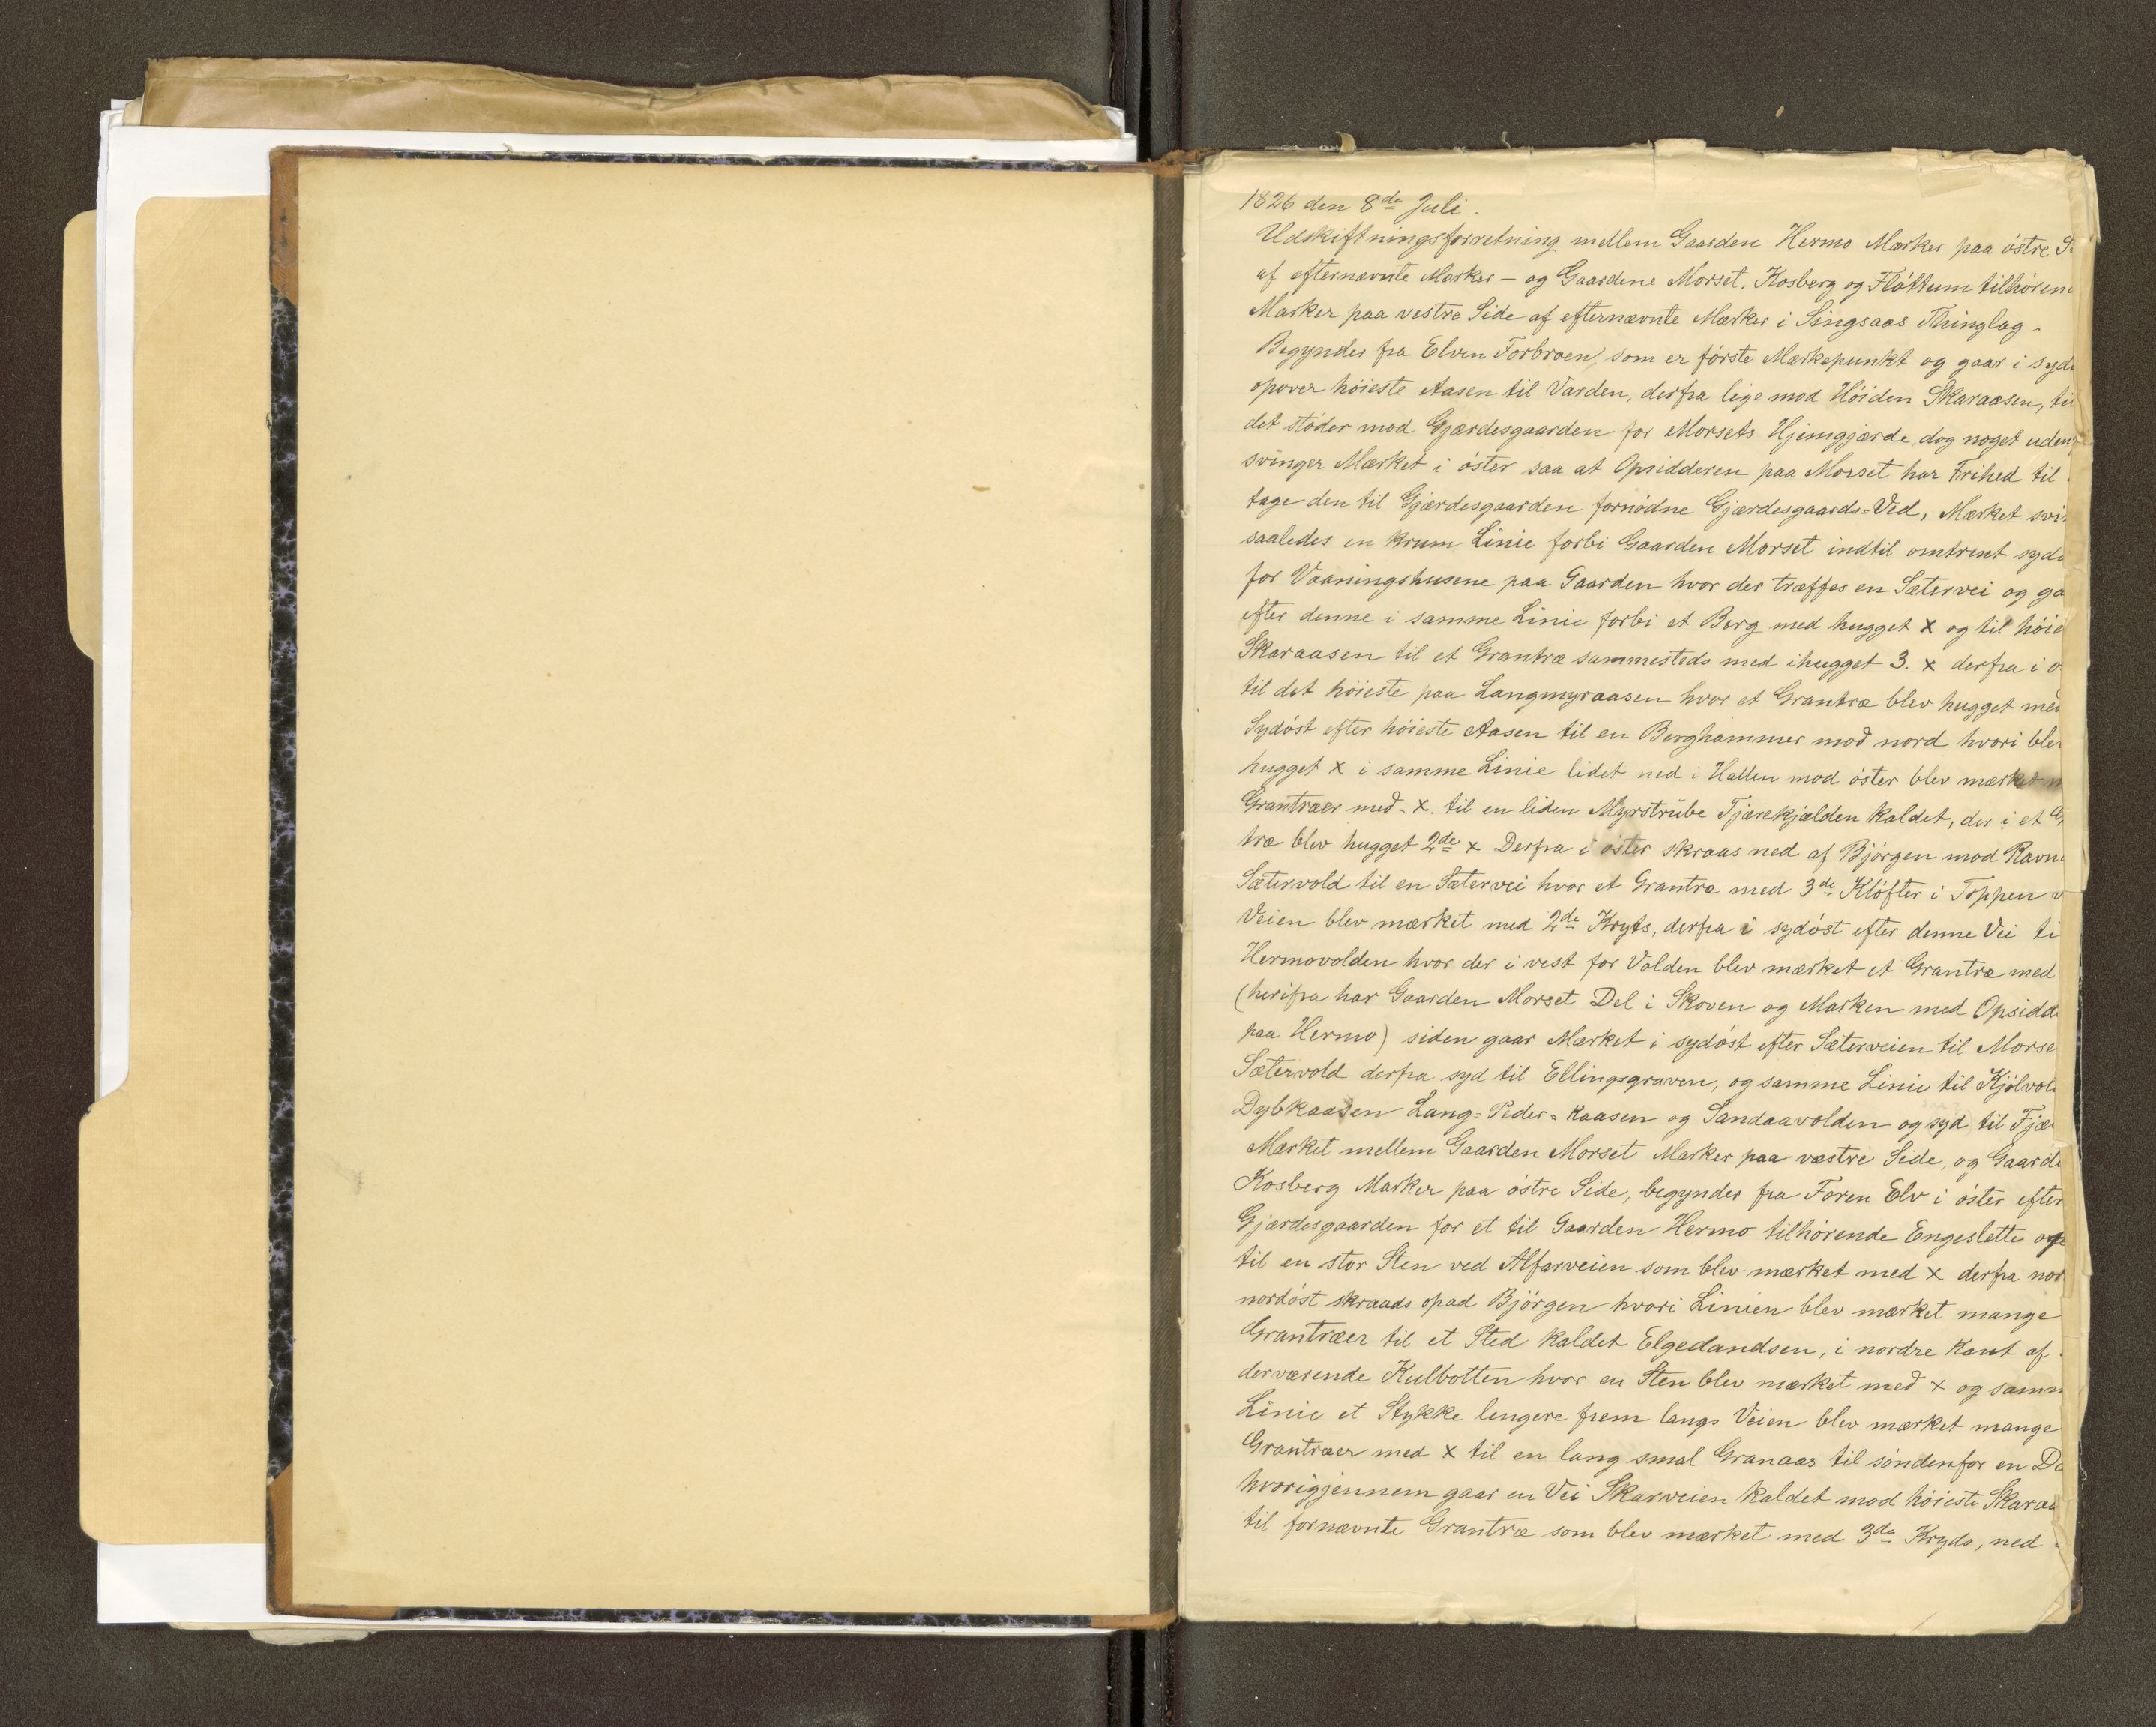 1826 den 8de Juli.
Udskiftningsforretning mellem Gaarden Hermo Marker paa östre
af efternævnte Marker - og Gaardene Morset, Kosberg og Flöttum tilhören
Marker paa vestre Side af efternævnte Mærker i Singsaas Thinglag.
Begynder fra Elven Forbroen som er förste Mærkepunkt og gaar i syd
opover höieste Aasen til Varden, derfra lige mod Höiden Skaraasen, til
det stöder mod Gjærdesgaarden for Morsets Hjemgjærde, dog noget uden
svinger Mærket i öster saa at Opsidderen paa Morset har Frihed til
tage den til Gjærdesgaarden fornödne Gjærdesgaards=Ved, Mærket svi
saaledes en krum Linie forbi Gaarden Morset indtil omtrent syd
for Vaaningshusene paa Gaarden hvor der træffes en Sætervei og ga
efter denne i samme Linie forbi et Berg med hugget x og til höie
Skaraasen til et Grantræ sammesteds med ihugget 3. x derfra i
til det höieste paa Langmyraasen hvor et Grantræ blev hugget med
Sydöst efter höieste Aasen til en Berghammer mod nord hvori blev
hugget x i samme Linie lidet ned i Hallen mod öster blev mærket
Grantræer med - x. til en liden Myrstribe Tjærekjælden kaldet, der i et
træ blev hugget 2de x Derfra i öster skraas ned af Björgen mod Ravn
Sætervold til en Sætervei hvor et Grantræ med 3de Klöfter i Toppen
Veien blev mærket med 2de Kryts, derfra i sydöst efter denne Vei ti
Hermovolden hvor der i vest for Volden blev mærket et Grantræ med
(herifra har Gaarden Morset Del i Skoven og Marken med Opsidd
paa Hermo) siden gaar Mærket i sydöst efter Sæterveien til Morse
Sætervold derfra syd til Ellingsgraven, og samme Linie til Kjölvol
Dybkaasen Lang=Peder=Kaasen og Sandaavolden og syd til Fjæ
Mærket mellem Gaarden Morset Marker paa væstre Side, og Gaard
Kosberg Marker paa östre Side, begynder fra Foren Elv i öster efter
Gjærdesgaarden for et til Gaarden Hermo tilhörende Engeslette og
til en stor Sten ved Alfarveien som blev mærket med x derfra nor
nordöst skraads opad Björgen hvori Linien blev mærket mange
Grantræer til et Sted kaldet Elgedandsen, i nordre Kant af
derværende Kulbotten hvor en Sten blev mærket med x og samm
Linie et Stykke lengere frem langs Veien blev mærket mange
Grantræer med x til en lang smal Granaas til söndenfor en
hvorigjennem gaar en Vei Skarveien kaldet mod höieste Skaraa
til fornævnte Grantræ som blev mærket med 3de Kryds, ned